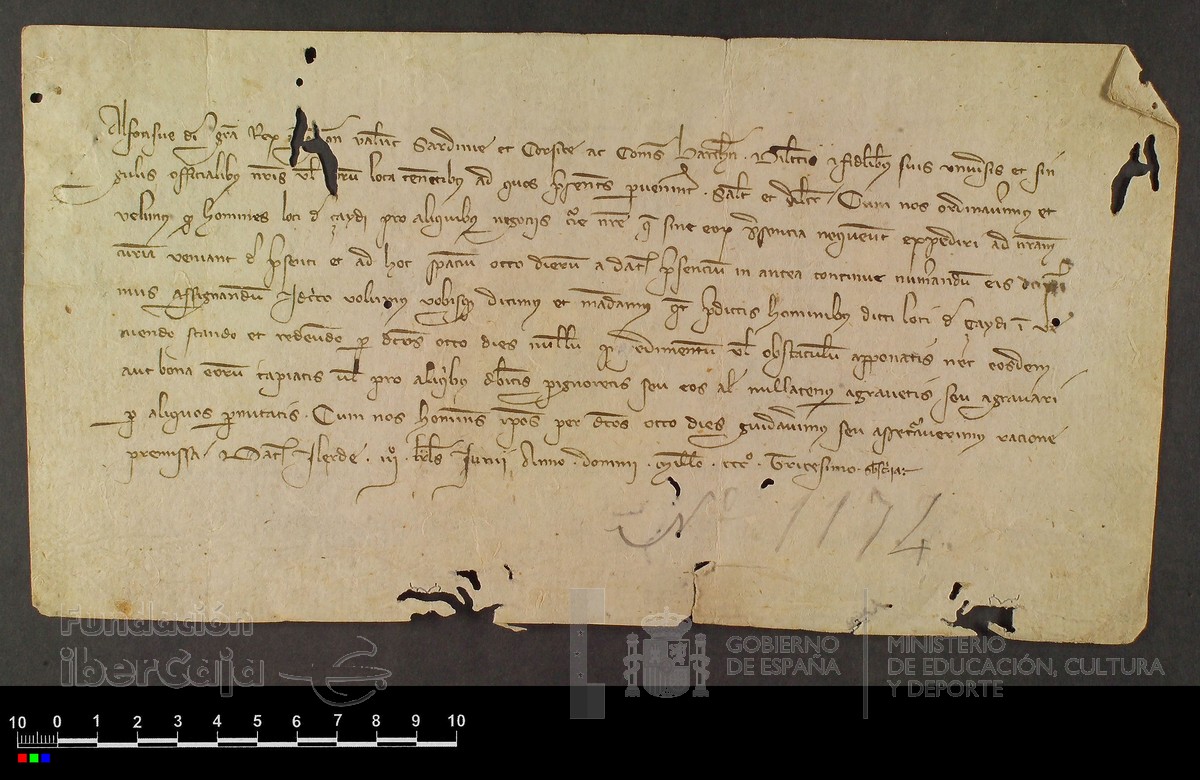 Alfonsus dei gra Rex on valent Sardinie et Corsice ac Comes Barchn. Dilectis & fidelibus suis universis et sin
gulis officialibus nris vel eorum loca tenentibus ad quos presentes pervenerint. Salt et dilect. Cum nos ordinaverimus et
velimus quod homines loci de Çaydi pro aliquibus negociis curie nre que sine eorum presencia nequeunt expediri ad nram
curiam veniant de presenti et ad hoc spacium octo dierum a dat presencium in antea continue numerandum eis
mus assignandum Idcirco volumus vobisque dicimus et mandamus quatenus predictis hominibus dicti loci de Çaydi in
niendo stando et redeundo per dictos octo dies nullum impedimentum vel obstaculum apponatis nec eosdem
aut bona eorum capiatis vel pro aliquibus debitis pignoretis seu eos al nullatenus agravetis seu agravari
per aliquos permittatis. Cum nos homines ipsos per dictos octo dies guidaverimus seu assecuraverimus racione
premissa. Dat Ilerde. kls Junii Anno domini millo ccco Tricesimo
Nº 1174
Fundación
iberCaja
GOBIERNO
DE ESPAÑA
MINISTERIO
DE EDUCACIÓN, CULTURA
Y DEPORTE
10 0 1 2 3 4 5 6 7 8 9 10